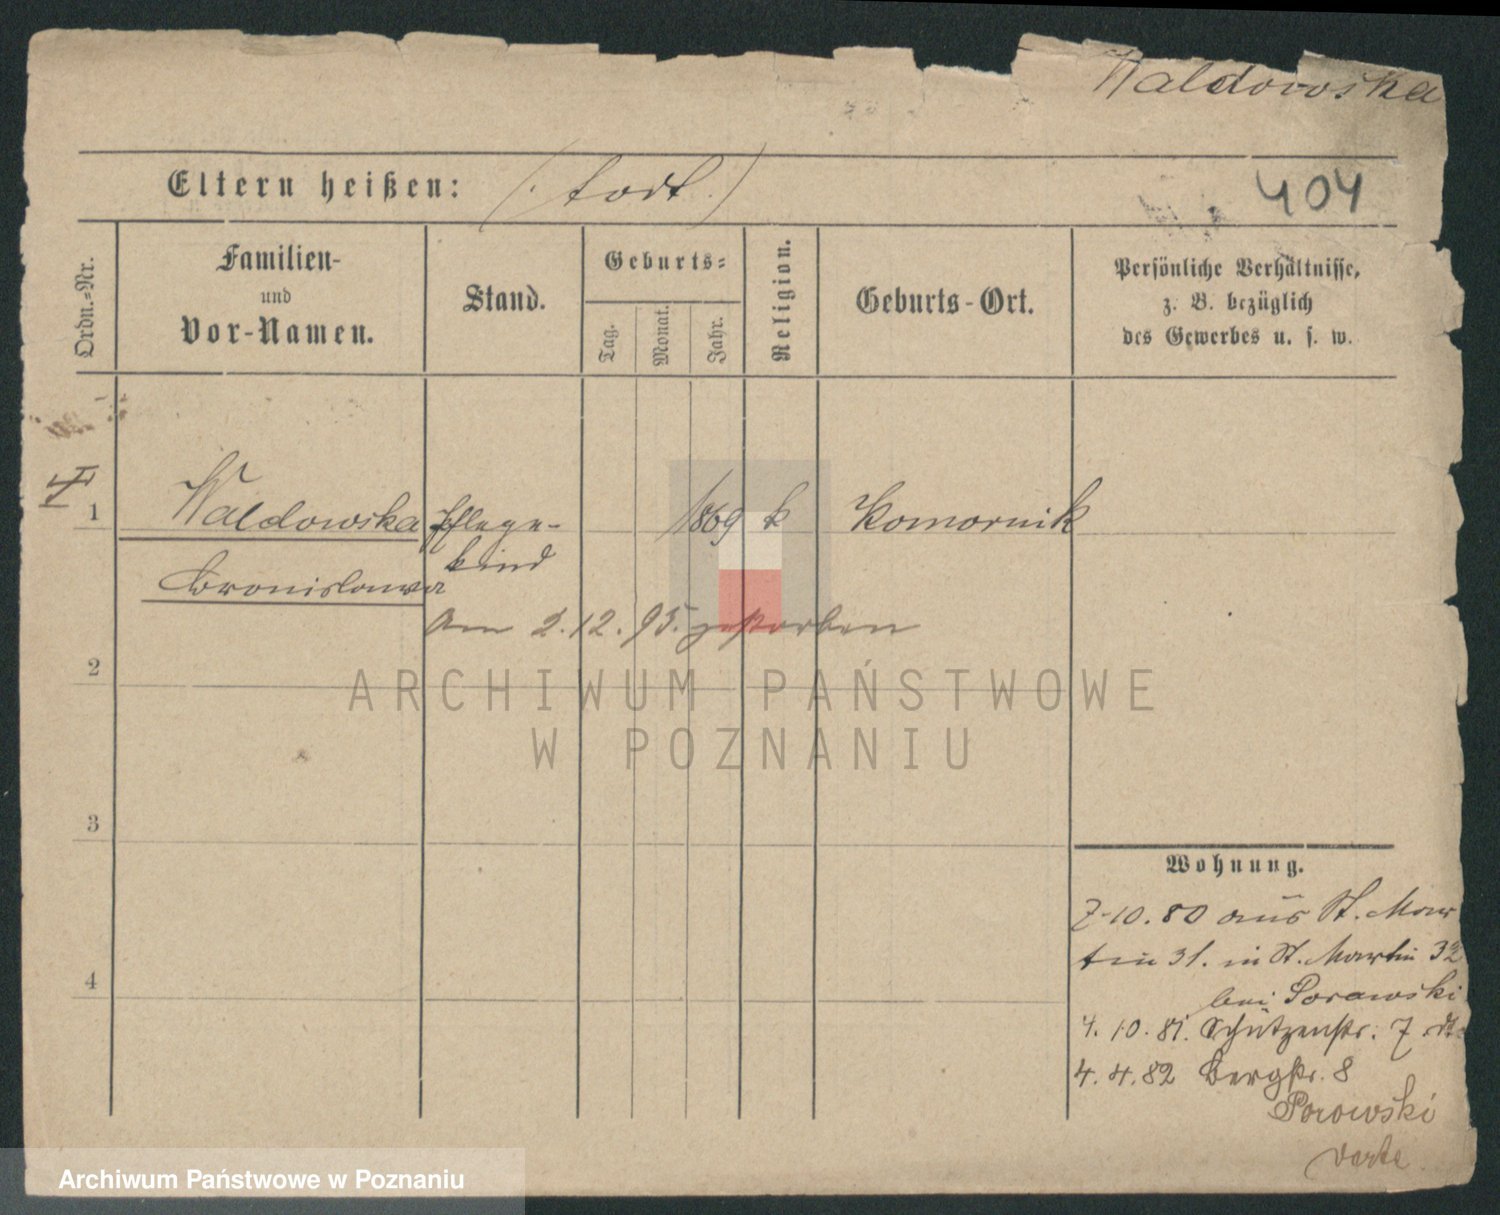 Waldowska
Eltern heißen: (todt.)
404
Ordn.=Nr.
Familien-
und
Vor-Namen.
Stand.
Geburts=
Tag.
Monat.
Jahr.
Religion.
Geburts-Ort.
Persönliche Verhältnisse,
z. B. bezüglich
des Gewerbes u. s. w.
1 Waldowska Pflege- 1869 k Komornik
Bronislawa kind
Am 2.12.95. gestorben
2
ARCHIWUM PAŃSTWOWE
W POZNANIU
3
4
Wohnung.
7.10.80 aus St. Mar
tin 31. in St. Martin 32
bei Porawski
4.10.81. Schützenstr. 7
4.4.82 Bergstr. 8
Porowski
Archiwum Państwowe w Poznaniu